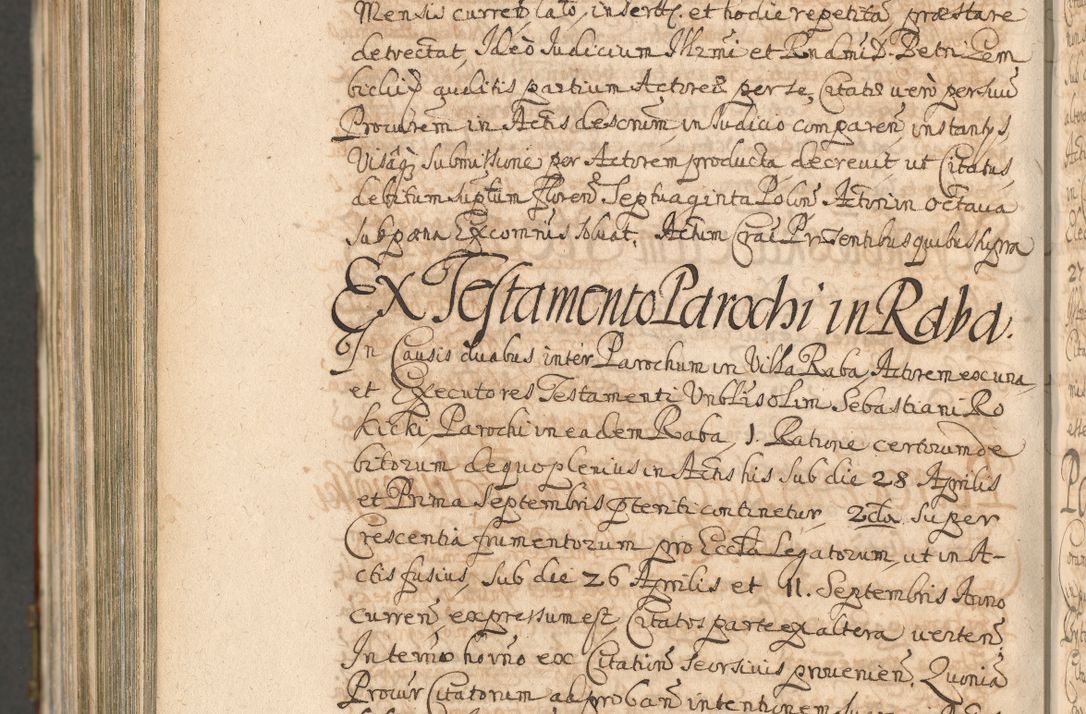 Mensis curren lato, insertt. et hodie repetita, præstare
detrectat, Ideò Iudicium Illrmi et Rndmi D. Petri Gem
bicki D. qualitis partium Actores per se, Citatis verò per suũ
Procurem in Actis descrtum in Iudicio comparen instantys,
Visaq̨ submissione per Actorem producta decrevit ut Citatus
debitum suptum floren Septuaginta Polon Actori in octava
sub pæna Excomnis solvat. Actum Crac Præsentibus quibus supra
Ex Testamento Parochi in Raba.
In Causis duabus inter Parochum in Villa Raba, Actorem ex una,
et Executores Testamenti Vnblis olim Sebastiani Ro
kicki, Parochi in eadem Raba, 1. Ratione certorum de
bitorum de quo plenius in Actis his sub die 28 Aprilis
et Prima Septembris ptenti continetur, 2da super
Crescentia frumentorum pro Eccla legatorum, ut in A-
ctis fusius, sub die 26 Aprilis et 11. Septembris Anno
curren expressum est, Citatos parte ex altera verten
In termo horno ex Citation seorsivis provenien. Quonia
Procur Citatorum ad proban intentionem